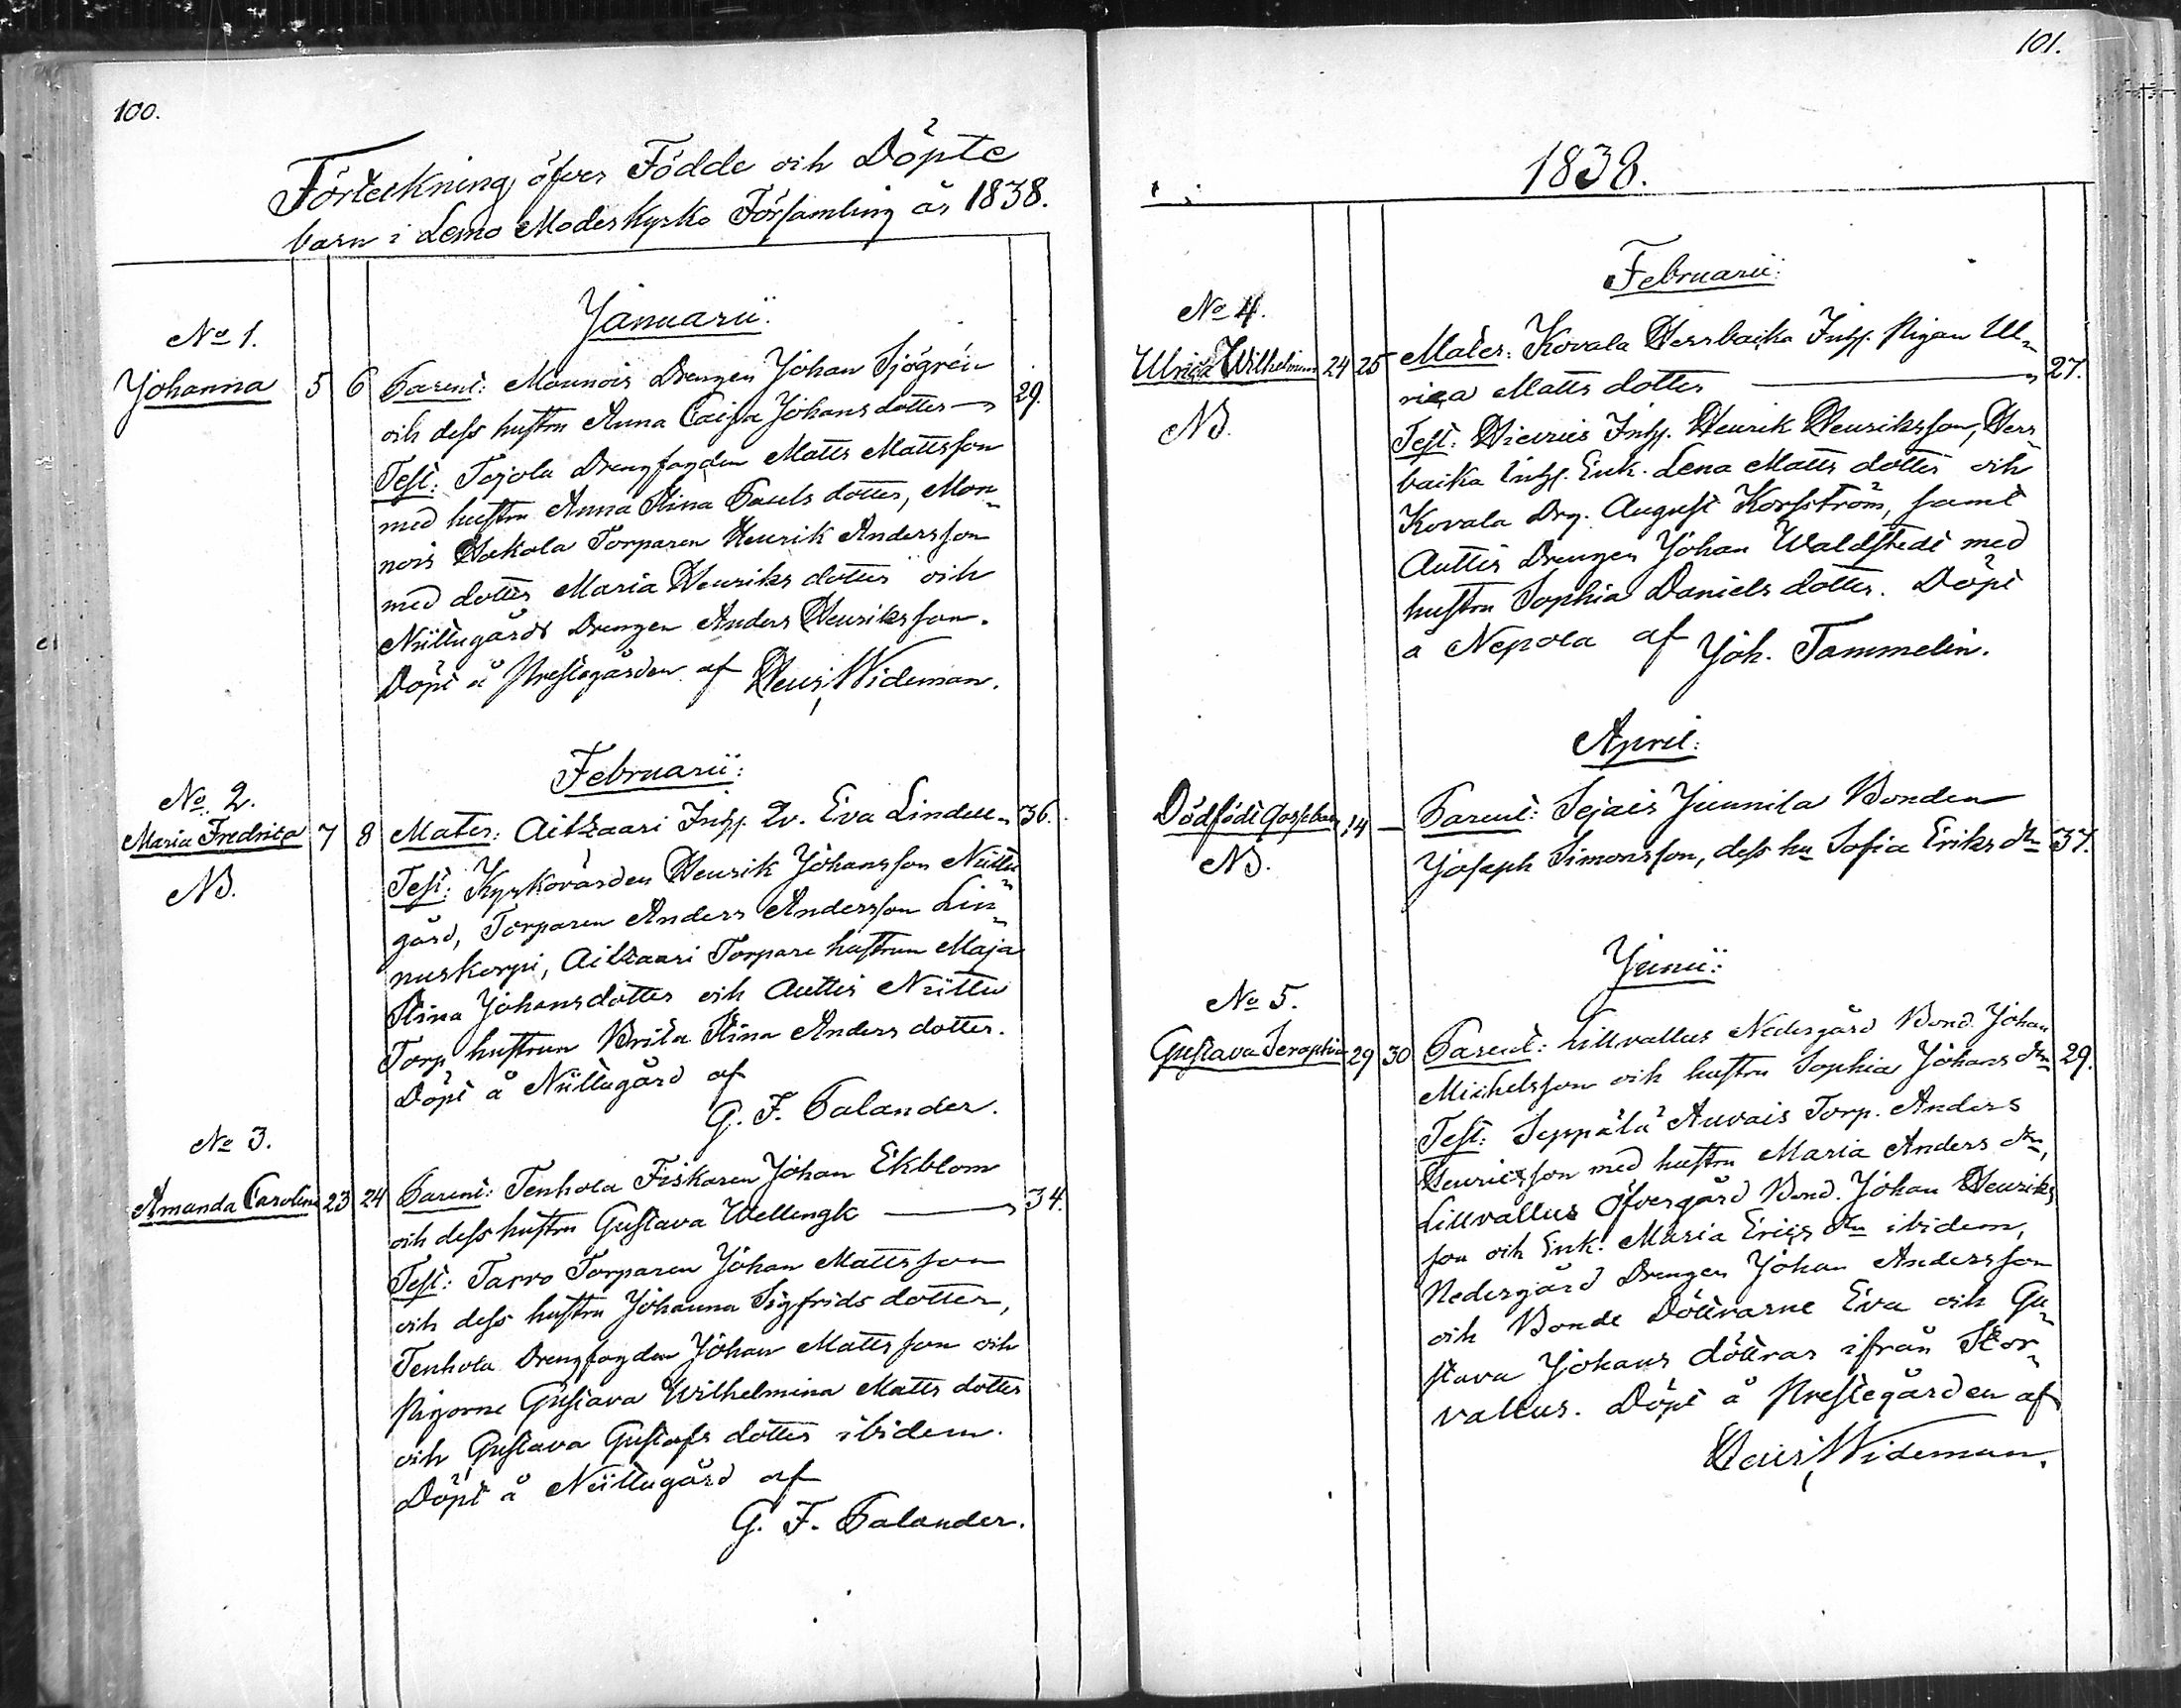 100.
Förteckning öfver Födde och Döpte
barn i Lemo Moderkyrko Församling år 1838.
Januarii:
No 1.
Johanna 5 6 Parent: Monnois Drengen Johan Sjögrén
och dess hustru Anna Caisa Johansdotter 29.
Test: Tojola Drengfogden Matts Mattsson
med hustru Anna Stina Pauls dotter, Mon-
nois Kokola Torparen Henrik Andersson
med dotter Maria Henriks dotter och
Niittugårds Drengen Anders Henriksson.
Döpt å Prestegården af Henr. Wideman.
Februarii:
No 2.
Maria Fredrica 7 8 Mater: Aitzaari Inhs. Qv. Eva Lindell 36.
NB.
Test: Kyrkovärden Henrik Johansson Niittu
gård, Torparen Anders Andersson Lin-
nuskorpi, Aitzaari Torpare hustrun Maja
Stina Johansdotter och Auttis Niittu
Torp hustrun Brita Stina Anders dotter.
Döpt å Niittugård af
G. F. Palander.
No 3.
Amanda Carolina 23 24 Parent: Tenhola Fiskaren Johan Ekblom
och dess hustru Gustava Wellengk 34.
Test: Tarvo Torparen Johan Mattsson
och dess hustru Johanna Sigfrids dotter,
Tenhola Drengfogden Johan Mattsson och
Pigorne Gustava Wilhelmina Matts dotter
och Gustava Gustafs dotter ibidem.
Döpt å Niittugård af
G. F. Palander.
101.
1838.
Februarii:
No 4.
Ulrica Wilhelmina 24 25 Mater: Kovala Herrbacka Inhs. Pigan Ul-
rica Matts dotter 27.
NB.
Test: Hieriis Inhs. Henrik Henriksson, Herr-
backa Inhs. Enk. Lena Matts dotter och
Kovala Drg. August Korsström, samt
Auttis Drengen Johan Waldstedt med
hustru Sophia Daniels dotter. Döpt
å Nepola af Joh. Tammelin.
April:
Dödfödt Gossebarn 14 — Parent: Sejais Junnila Bonden
NB.
Joseph Simonsson, dess hu Sofia Eriks dtr 37.
Junii:
No 5.
Gustava Seraphia 29 30 Parent: Lillvallus Nedergård Bond. Johan
Michelsson och hustru Sophia Johans dtr 29.
Test: Seppälä Auvais Torp. Anders
Henricsson med hustru Maria Anders dtr,
Lillvallus Öfvergård Bond. Johan Henriks
son och Enk. Maria Erics dtr ibidem,
Nedergård Drengen Johan Andersson
och Bonde Döttrarne Eva och Gu-
stava Johans döttrar ifrån Stor-
vallus. Döpt å Prestegården af
Henr. Wideman.